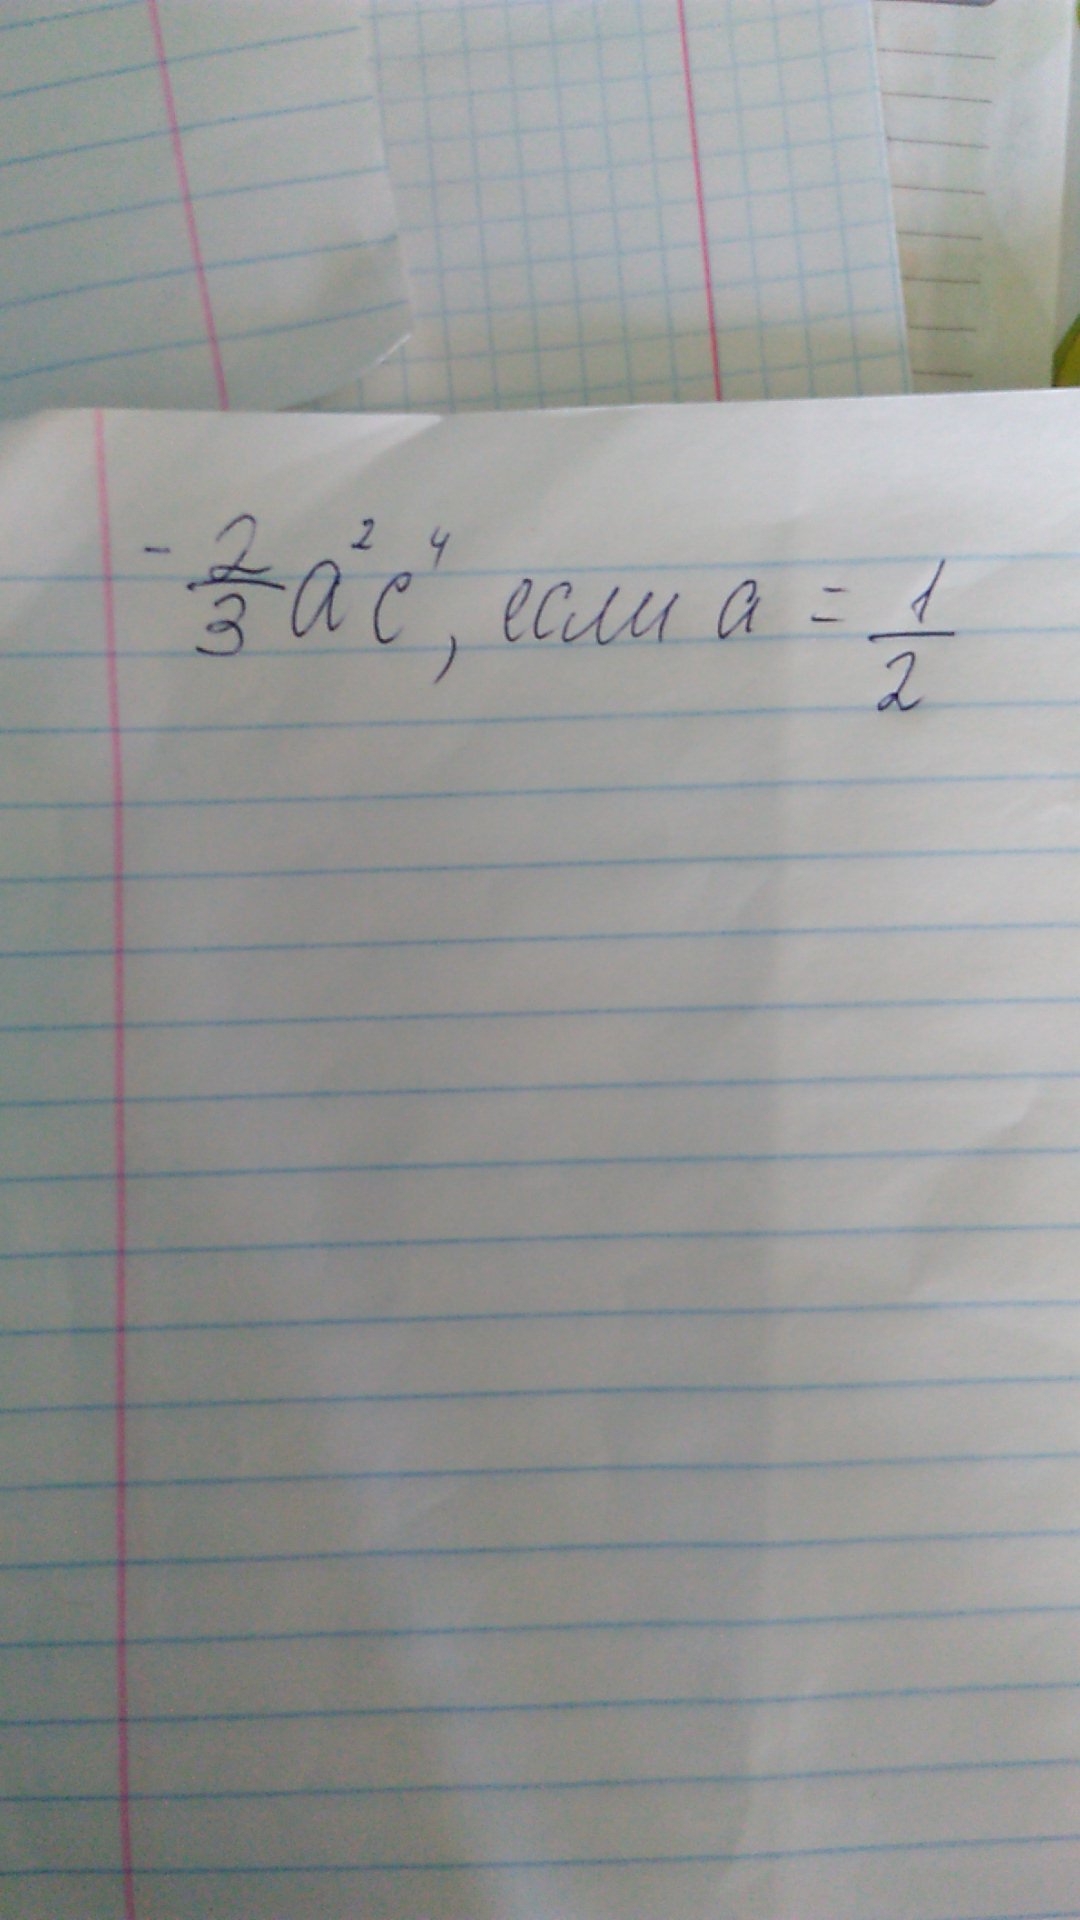 -2/3 a²c⁴, если a = 1/2